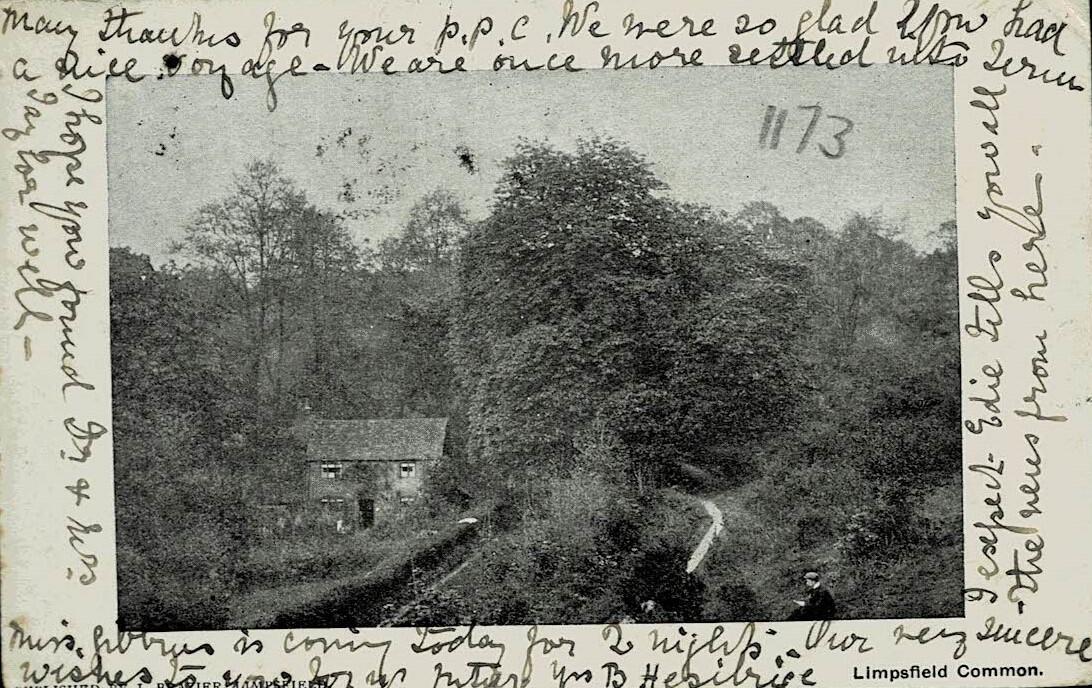 Many thanks for your p.p.c. We were so glad you had
a nice voyage - We are once more settled into Term
I hope you found Dr & Mrs
Taylor well -
1173
I expect Edie tells you all
the news from here -
Miss Gibbins is coming today for 2 nights. Our very sincere
wishes to you for yr B
Limpsfield Common.
PUBLISHED BY LIMPSFIELD